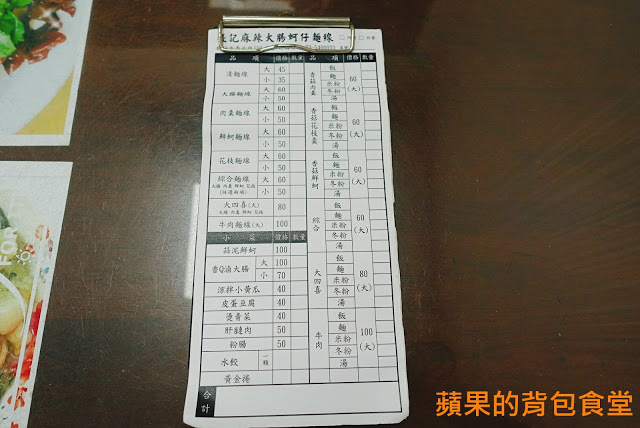 記麻辣大腸蚵仔麵線
品 項 價格 數量
清麵線 大 45
小 35
大腸麵線 大 60
小 50
肉羹麵線 大 60
小 50
鮮蚵麵線 大 60
小 50
花枝麵線 大 60
小 50
綜合麵線 大 60
大腸 肉羹 鮮蚵 花枝
(任選兩項) 小 50
大四喜(大) 80
大腸 肉羹 鮮蚵 花枝
牛肉麵線(大) 100
小 菜 價格 數量
蒜泥鮮蚵 100
香Q滷大腸 大 100
小 70
涼拌小黃瓜 40
皮蛋豆腐 40
燙青菜 40
肝腱肉 50
粉腸 50
水餃 一顆
黃金捲
合計
品 項 價格 數量
香菇肉羹 飯 麵 米粉 冬粉 湯 60(大)
香菇花枝羹 飯 麵 米粉 冬粉 湯 60(大)
香菇鮮蚵 飯 麵 米粉 冬粉 湯 60(大)
綜合 飯 麵 米粉 冬粉 湯 60(大)
大四喜 飯 麵 米粉 冬粉 湯 80(大)
牛肉 飯 麵 米粉 冬粉 湯 100(大)
蘋果的背包食堂